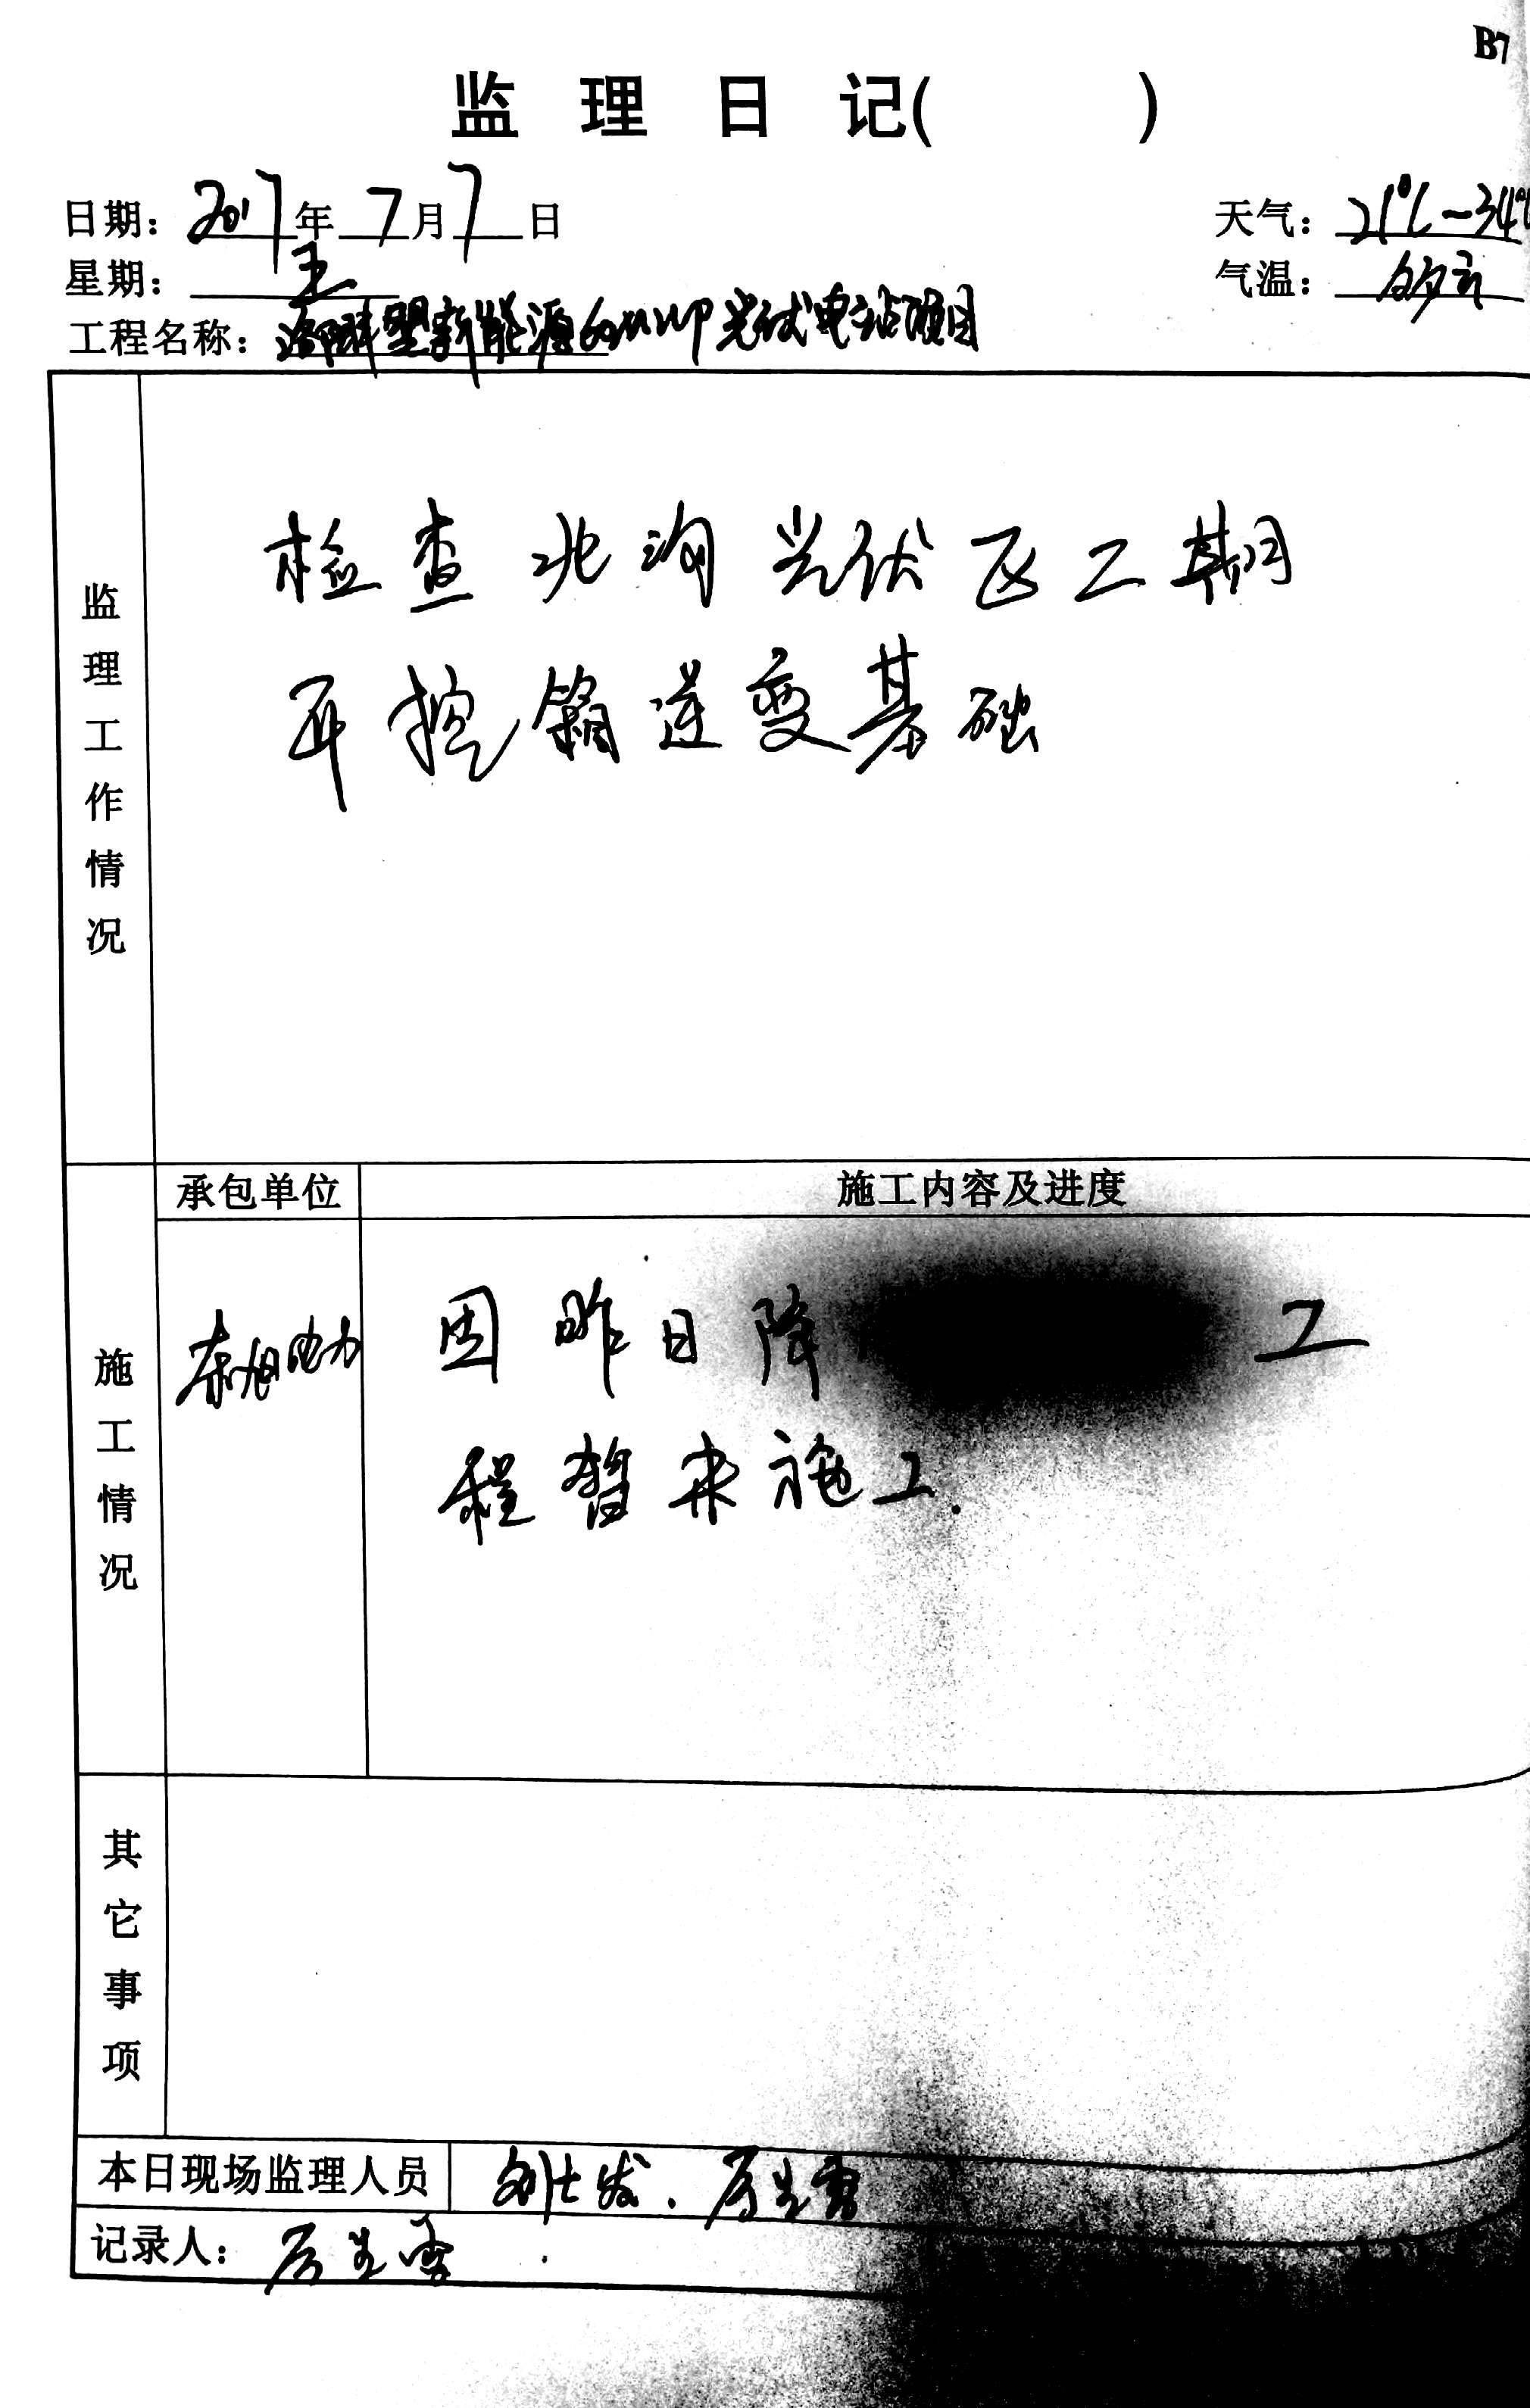 B7
监理日记( )
日期: 2017年7月7日 天气: 21℃-34℃
星期: 五 气温: 多云
工程名称: 新能源60MWP光伏电站项目
监理工作情况
检查北沟光伏区二期
开挖箱逆变基础
承包单位 施工内容及进度
施工情况
东旭电力 因昨日降 工
程暂未施工.
其它事项
本日现场监理人员
记录人: